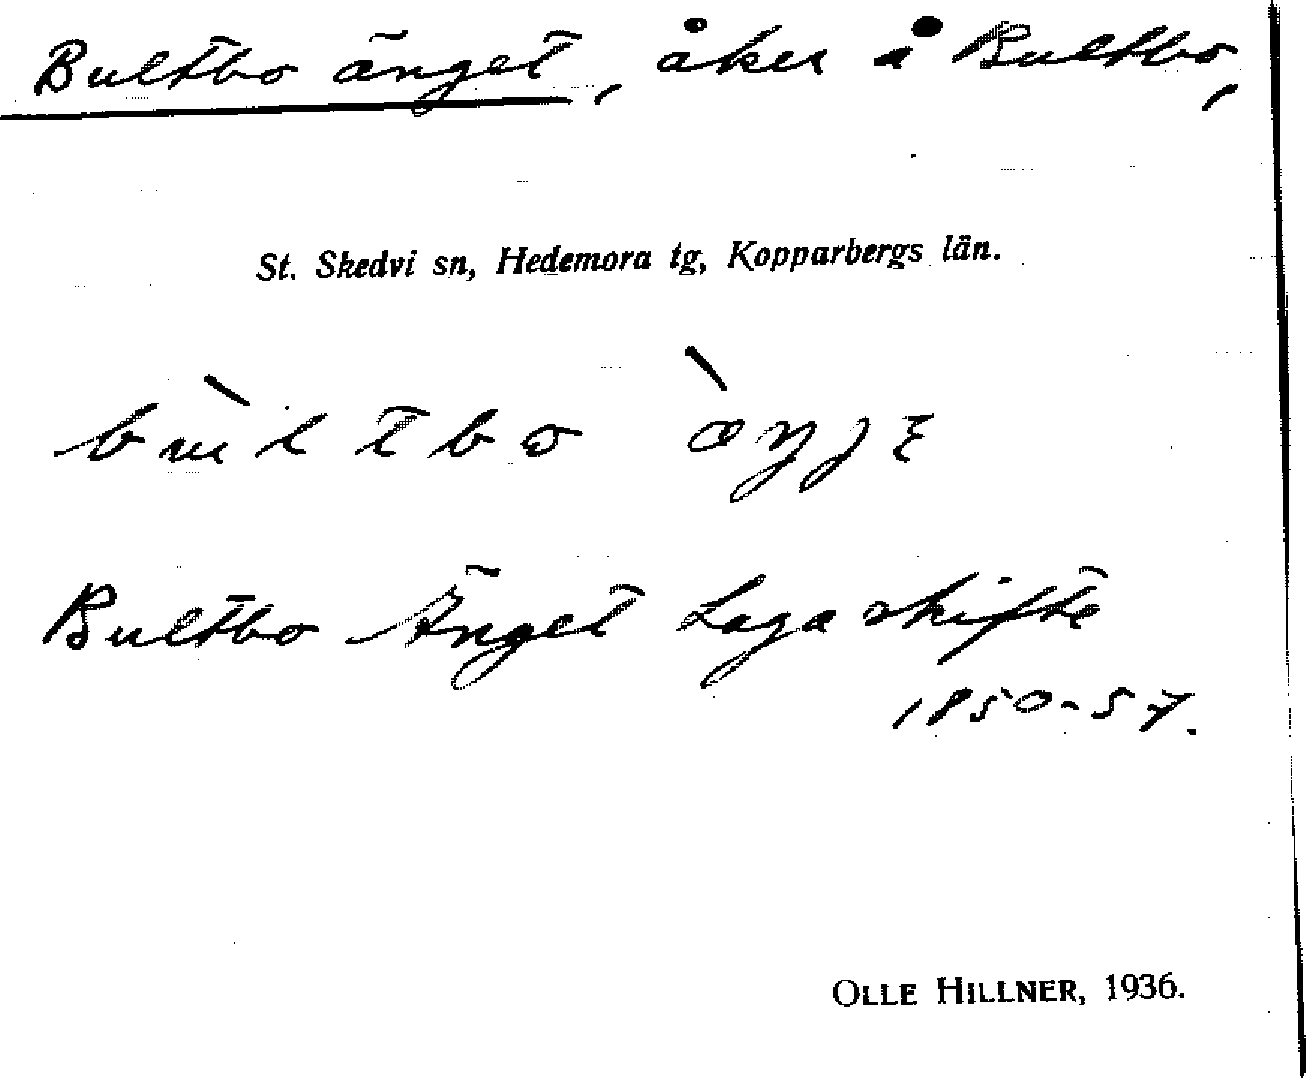 Bultbo änget, åker å Bultbo,
St. Skedvi sn, Hedemora tg, Kopparbergs län.
bùltbo
Bultbo Änget Laga skifte
1850-57.
OLLE HILLNER, 1936.